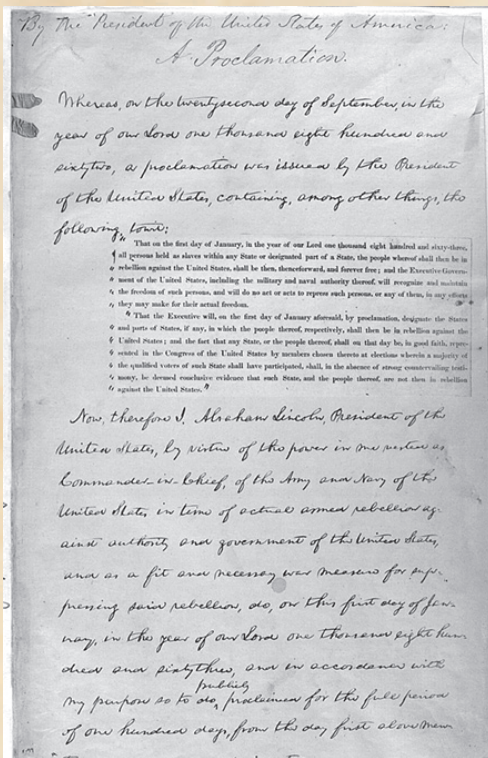 By the President of the United States of America:
A Proclamation.
Whereas, on the twentysecond day of September, in the
year of our Lord one thousand eight hundred and
sixtytwo, a proclamation was issued by the President
of the United States, containing, among other things, the
following, towit:
" That on the first day of January, in the year of our Lord one thousand eight hundred and sixty-three,
" all persons held as slaves within any State or designated part of a State, the people whereof shall then be in
" rebellion against the United States, shall be then, thenceforward, and forever free; and the Executive Govern-
" ment of the United States, including the military and naval authority thereof, will recognize and maintain
" the freedom of such persons, and will do no act or acts to repress such persons, or any of them, in any efforts
" they may make for their actual freedom.
" That the Executive will, on the first day of January aforesaid, by proclamation, designate the States
" and parts of States, if any, in which the people thereof, respectively, shall then be in rebellion against the
" United States; and the fact that any State, or the people thereof, shall on that day be, in good faith, repre-
" sented in the Congress of the United States by members chosen thereto at elections wherein a majority of
" the qualified voters of such State shall have participated, shall, in the absence of strong countervailing testi-
" mony, be deemed conclusive evidence that such State, and the people thereof, are not then in rebellion
" against the United States."
Now, therefore I, Abraham Lincoln, President of the
United States, by virtue of the power in me vested as
Commander-in-Chief, of the Army and Navy of the
United States in time of actual armed rebellion ag-
ainst authority and government of the United States,
and as a fit and necessary war measure for sup-
pressing said rebellion, do, on this first day of Jan-
uary, in the year of our Lord one thousand eight hun-
dred and sixtythree, and in accordance with
my purpose so to do, publicly proclaimed for the full period
of one hundred days, from the day first above men-